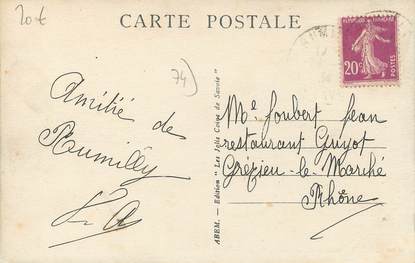 20€
CARTE POSTALE
74)
20c
POSTES
Amitié de
Rumilly
ABEM. - Edition "Les Jolis Coins de Savoie"
Me Joubert Jean
restaurant Guyot
Grézieu-le-Marché
Rhône